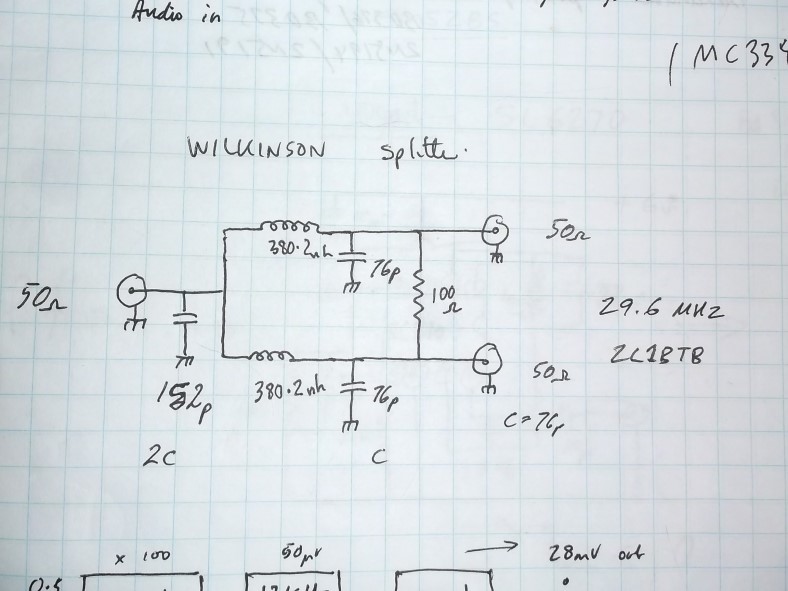 Audio in
MC334
WILKINSON Splitter.
380.2nh
76p
50Ω
50Ω
100
Ω
29.6 MHZ
ZL1BTB
152p
380.2nh
76p
50Ω
C=76p
2C
C
x 100
50μV
28mV out
0.5